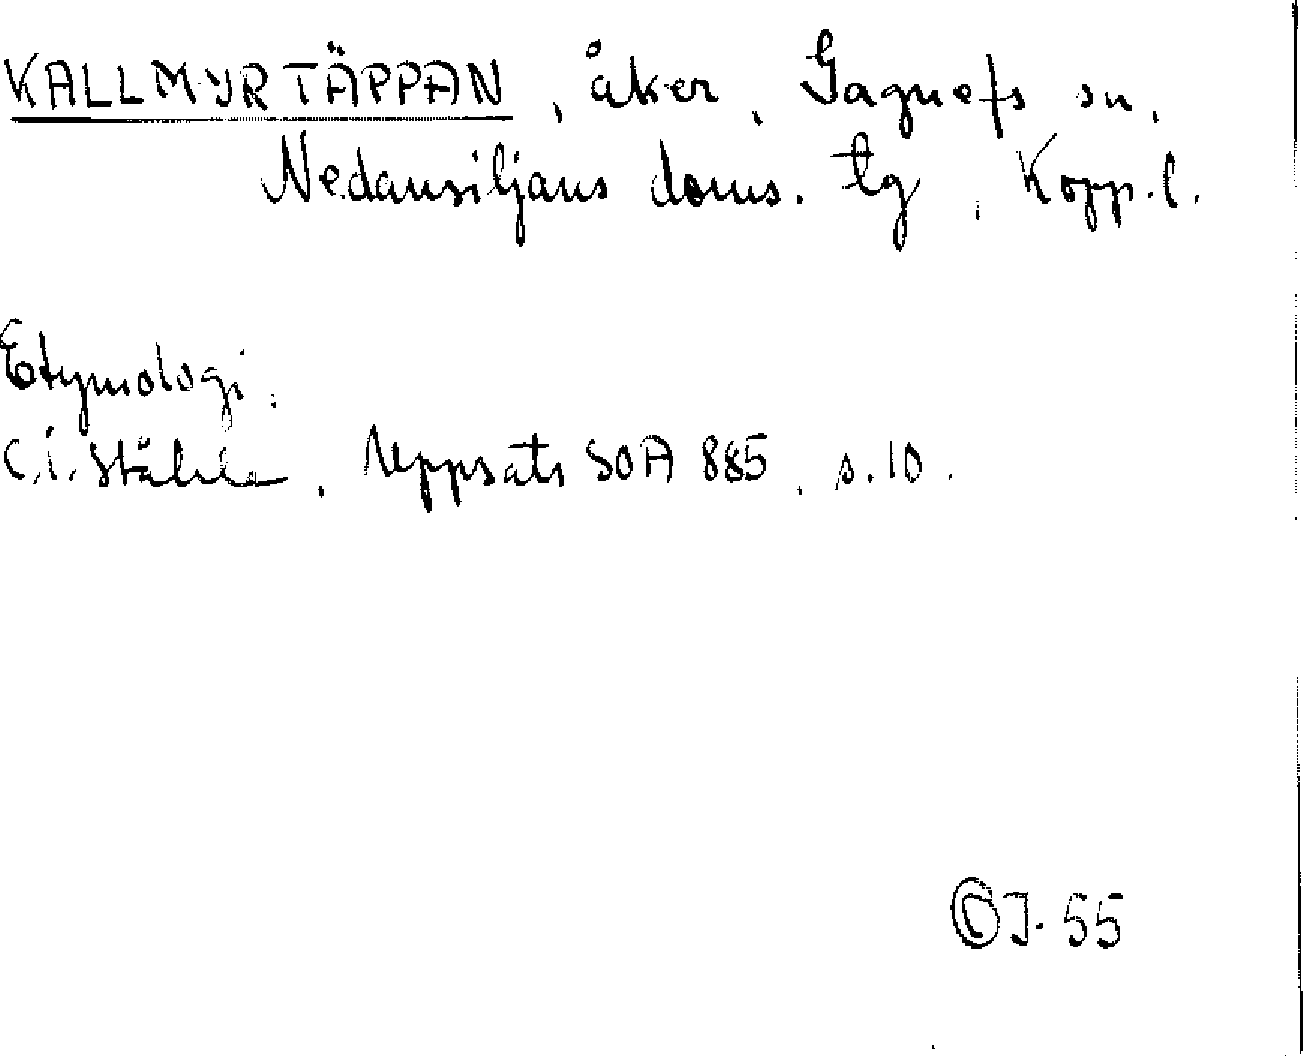 KALLMYRTÄPPAN, åker, Gagnefs sn,
Nedansiljans doms. tg, Kopp.l.
Etymologi:
C.I. Ståhle, Uppsats SOA 885, s.10.
55